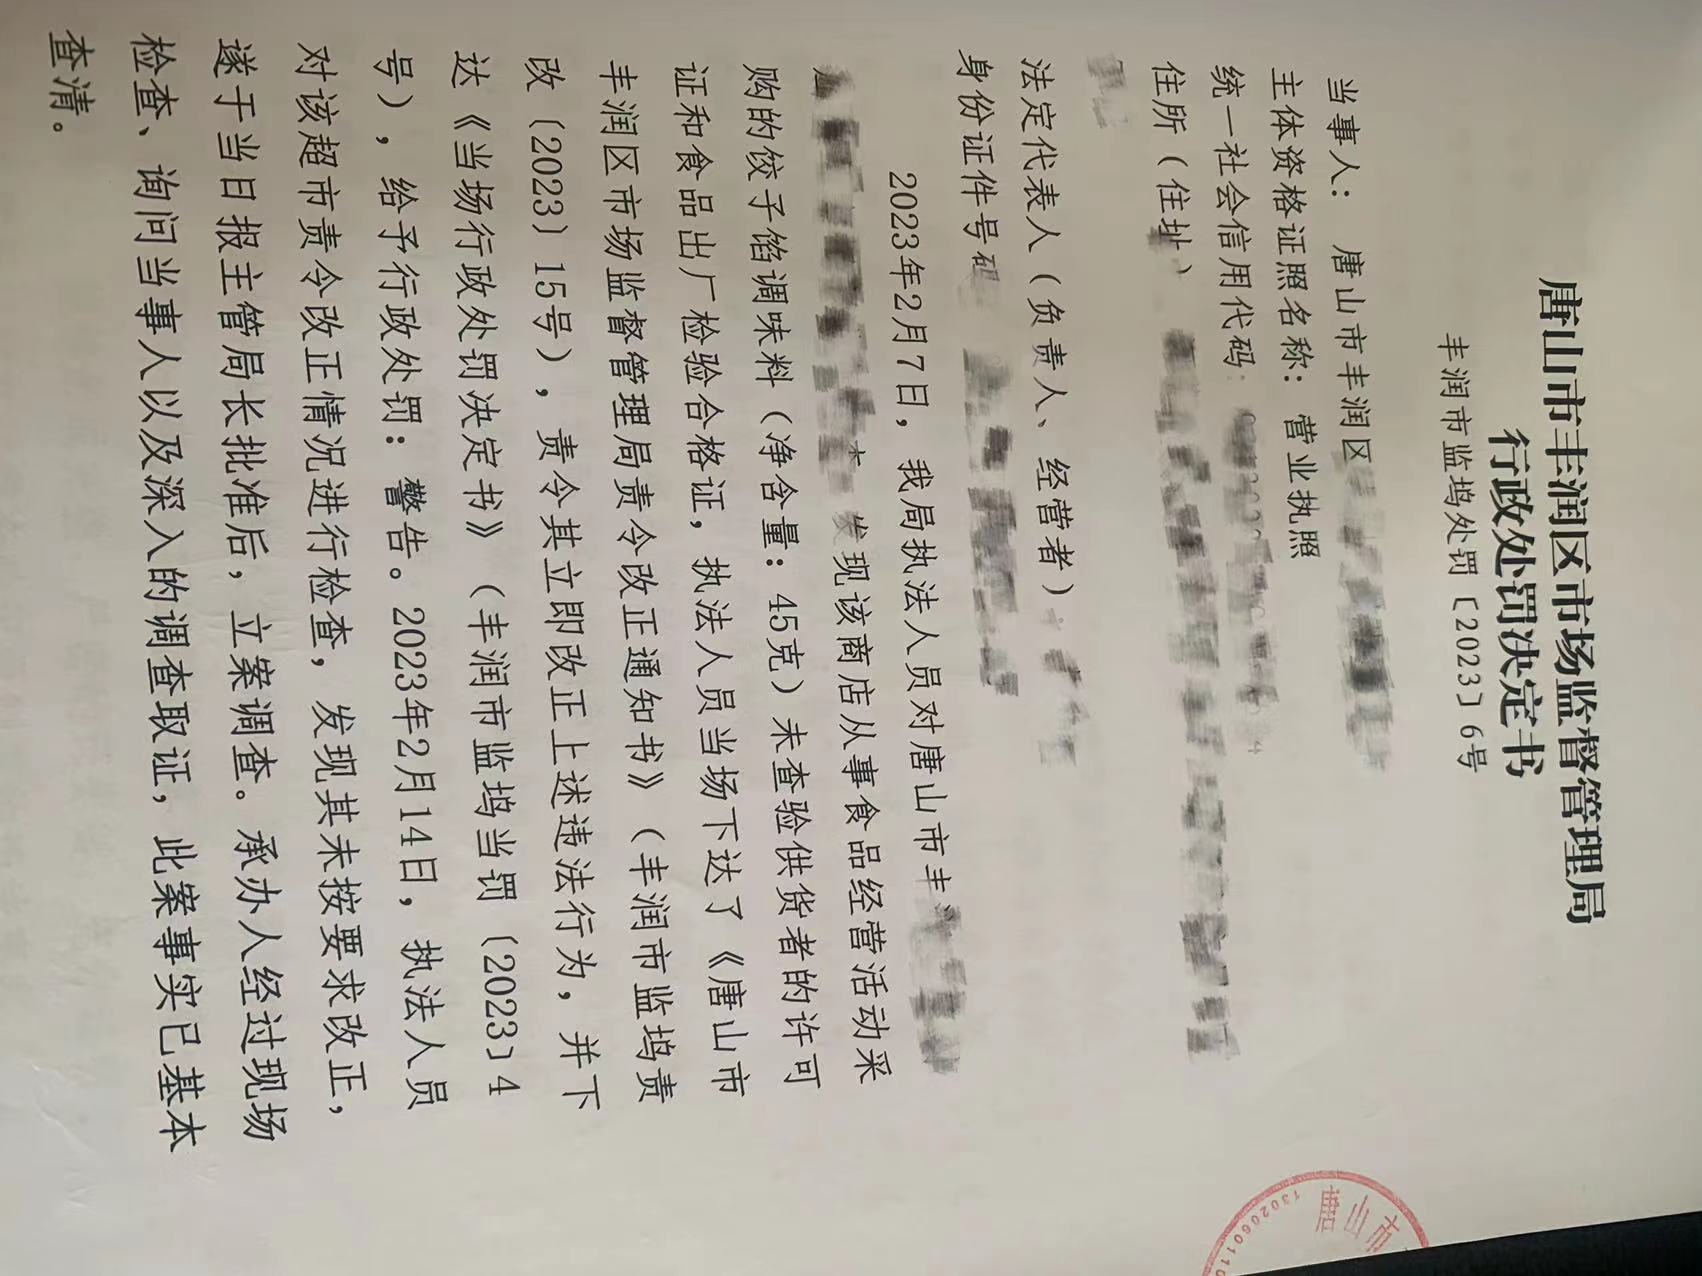 唐山市丰润区市场监督管理局
行政处罚决定书
丰润市监坞处罚〔2023〕6号
当事人：唐山市丰润区
主体资格证照名称：营业执照
统一社会信用代码
住所（住址）
法定代表人（负责人、经营者）
身份证件号码
2023年2月7日，我局执法人员对唐山市丰
发现该商店从事食品经营活动采
购的饺子馅调味料（净含量：45克）未查验供货者的许可
证和食品出厂检验合格证，执法人员当场下达了《唐山市
丰润区市场监督管理局责令改正通知书》（丰润市监坞责
改〔2023〕15号），责令其立即改正上述违法行为，并下
达《当场行政处罚决定书》（丰润市监坞当罚〔2023〕4
号），给予行政处罚：警告。2023年2月14日，执法人员
对该超市责令改正情况进行检查，发现其未按要求改正，
遂于当日报主管局长批准后，立案调查。承办人经过现场
检查、询问当事人以及深入的调查取证，此案事实已基本
查清。
唐山市
130200110